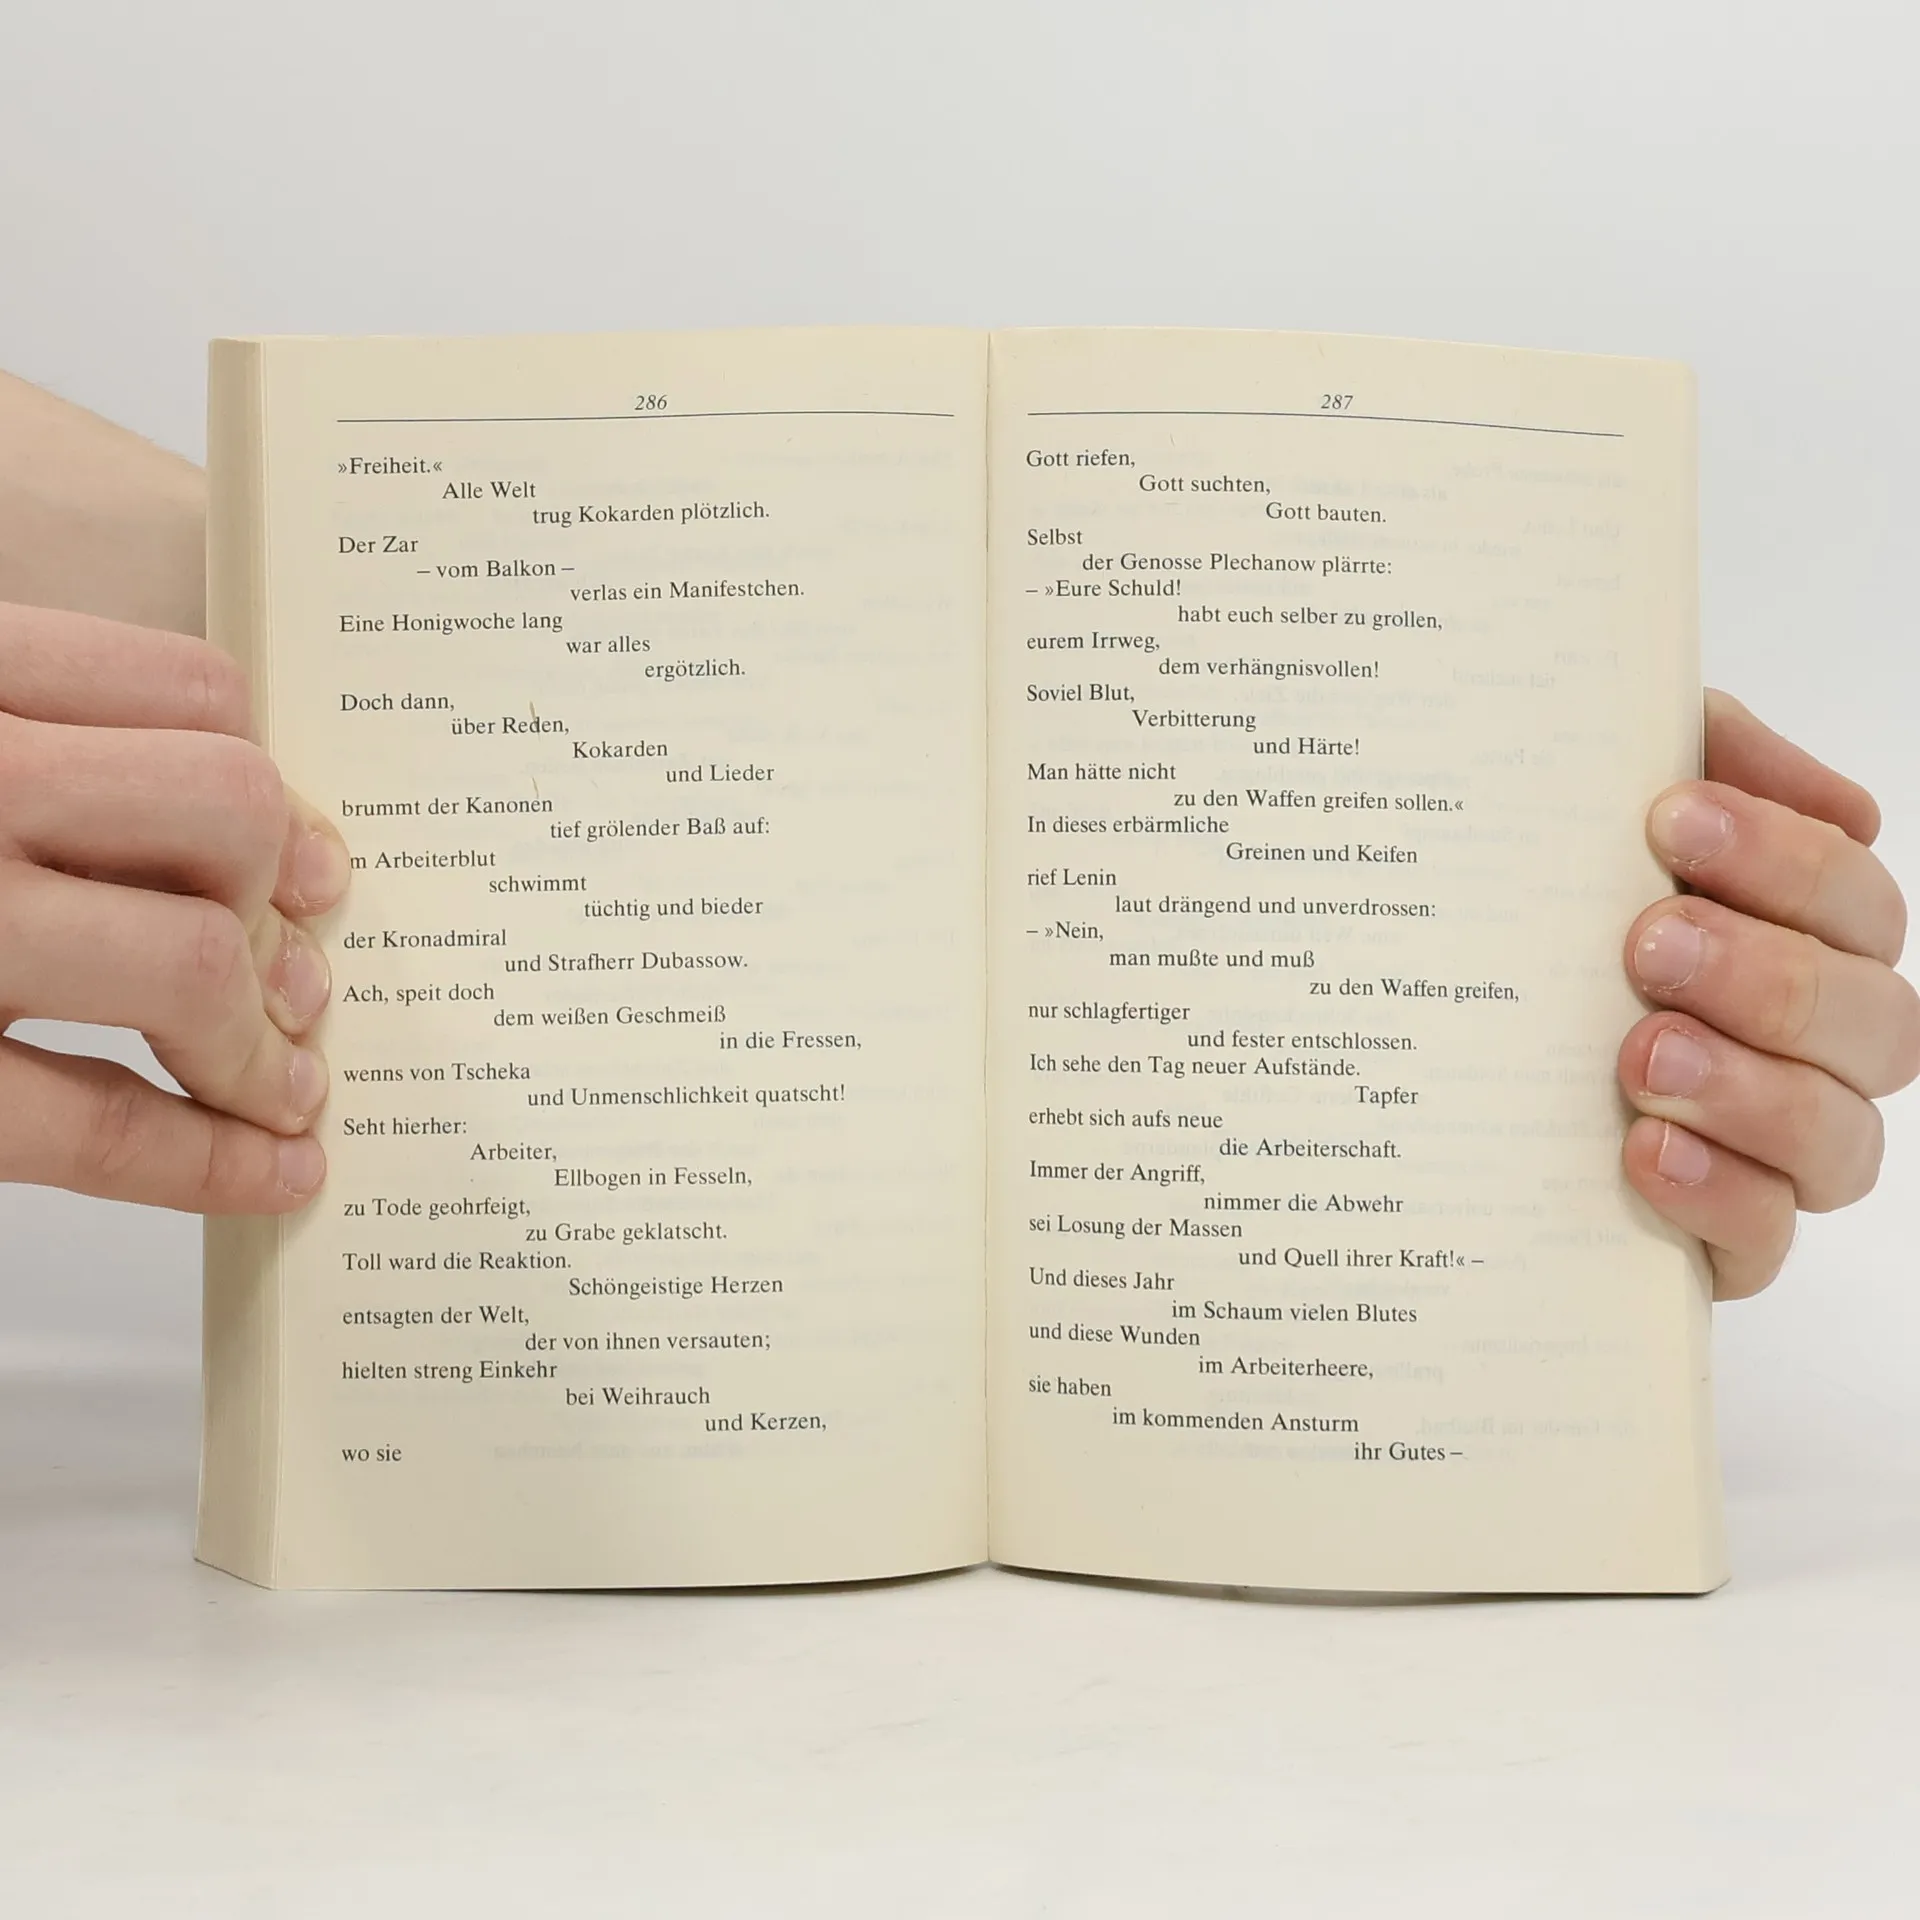 286
»Freiheit.«
Alle Welt
trug Kokarden plötzlich.
Der Zar
– vom Balkon –
verlas ein Manifestchen.
Eine Honigwoche lang
war alles
ergötzlich.
Doch dann,
über Reden,
Kokarden
und Lieder
brummt der Kanonen
tief grölender Baß auf:
m Arbeiterblut
schwimmt
tüchtig und bieder
der Kronadmiral
und Strafherr Dubassow.
Ach, speit doch
dem weißen Geschmeiß
in die Fressen,
wenns von Tscheka
und Unmenschlichkeit quatscht!
Seht hierher:
Arbeiter,
Ellbogen in Fesseln,
zu Tode geohrfeigt,
zu Grabe geklatscht.
Toll ward die Reaktion.
Schöngeistige Herzen
entsagten der Welt,
der von ihnen versauten;
hielten streng Einkehr
bei Weihrauch
und Kerzen,
wo sie
287
Gott riefen,
Gott suchten,
Gott bauten.
Selbst
der Genosse Plechanow plärrte:
– »Eure Schuld!
habt euch selber zu grollen,
eurem Irrweg,
dem verhängnisvollen!
Soviel Blut,
Verbitterung
und Härte!
Man hätte nicht
zu den Waffen greifen sollen.«
In dieses erbärmliche
Greinen und Keifen
rief Lenin
laut drängend und unverdrossen:
– »Nein,
man mußte und muß
zu den Waffen greifen,
nur schlagfertiger
und fester entschlossen.
Ich sehe den Tag neuer Aufstände.
Tapfer
erhebt sich aufs neue
die Arbeiterschaft.
Immer der Angriff,
nimmer die Abwehr
sei Losung der Massen
und Quell ihrer Kraft!« –
Und dieses Jahr
im Schaum vielen Blutes
und diese Wunden
im Arbeiterheere,
sie haben
im kommenden Ansturm
ihr Gutes –